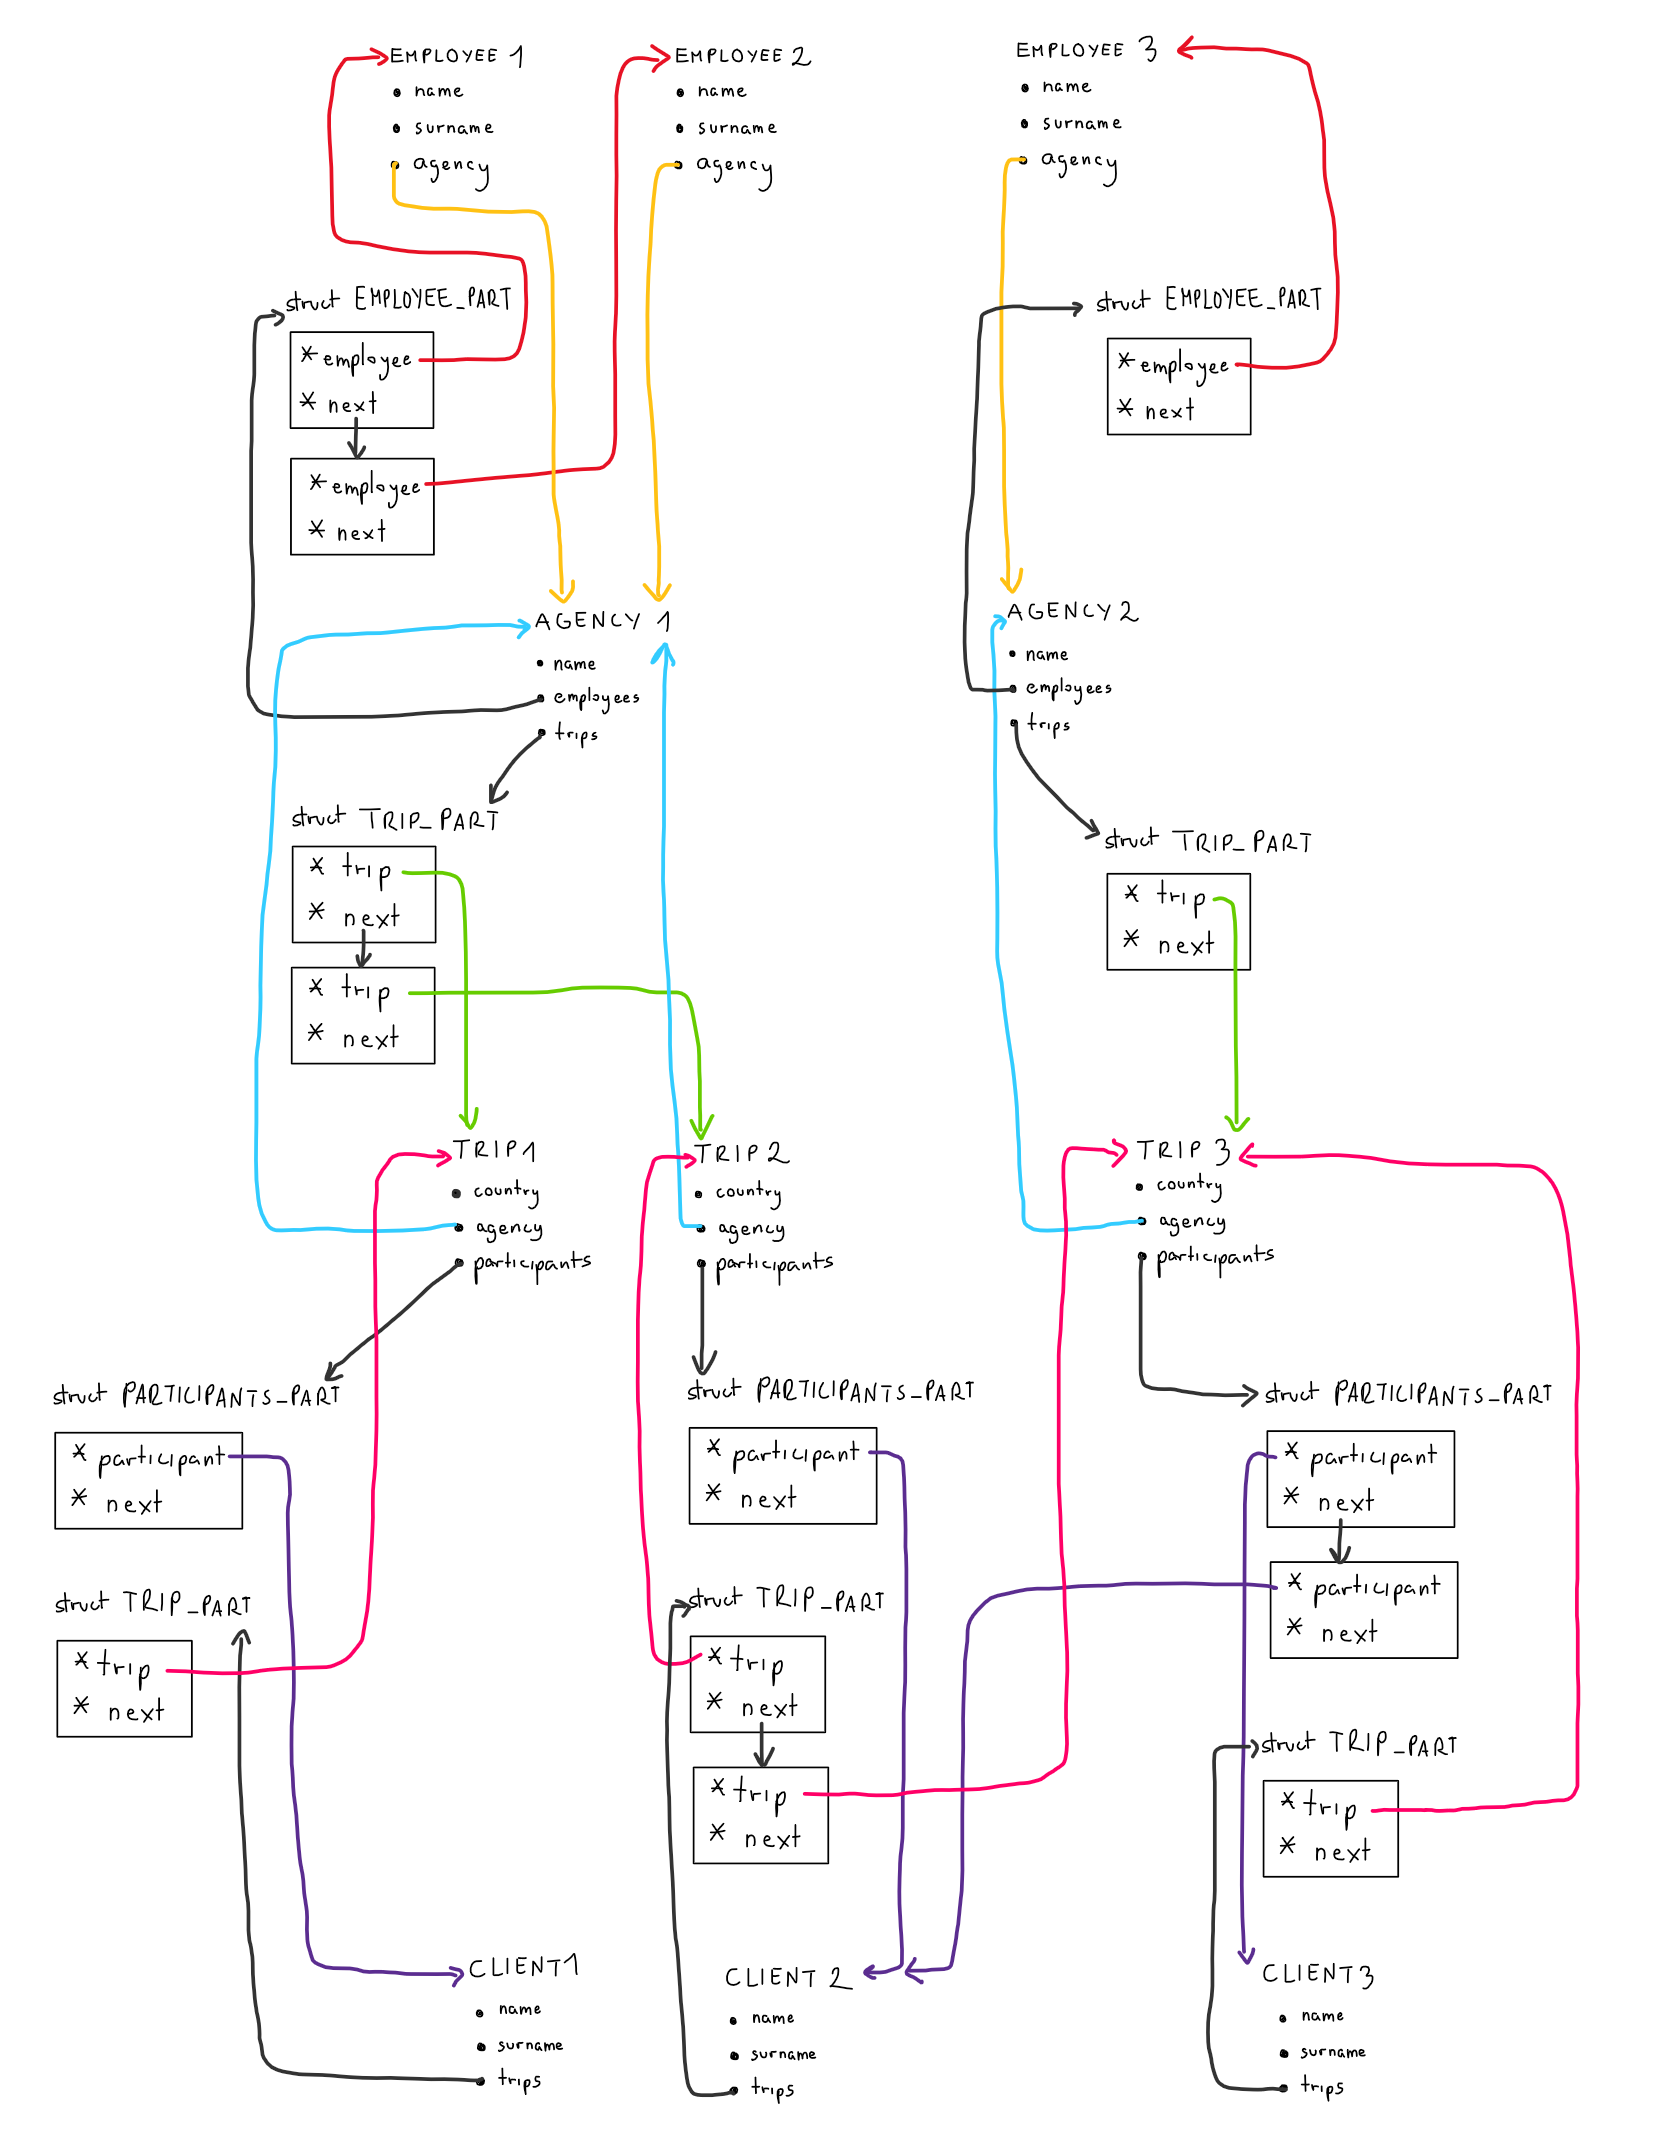 EMPLOYEE 1
• name
• surname
• agency
EMPLOYEE 2
• name
• surname
• agency
EMPLOYEE 3
• name
• surname
• agency
struct EMPLOYEE_PART
* employee
* next
* employee
* next
struct EMPLOYEE_PART
* employee
* next
AGENCY 1
• name
• employees
• trips
AGENCY 2
• name
• employees
• trips
struct TRIP_PART
* trip
* next
* trip
* next
struct TRIP_PART
* trip
* next
TRIP 1
• country
• agency
• participants
TRIP 2
• country
• agency
• participants
TRIP 3
• country
• agency
• participants
struct PARTICIPANTS_PART
* participant
* next
struct PARTICIPANTS_PART
* participant
* next
struct PARTICIPANTS_PART
* participant
* next
* participant
* next
struct TRIP_PART
* trip
* next
struct TRIP_PART
* trip
* next
* trip
* next
struct TRIP_PART
* trip
* next
CLIENT 1
• name
• surname
• trips
CLIENT 2
• name
• surname
• trips
CLIENT 3
• name
• surname
• trips